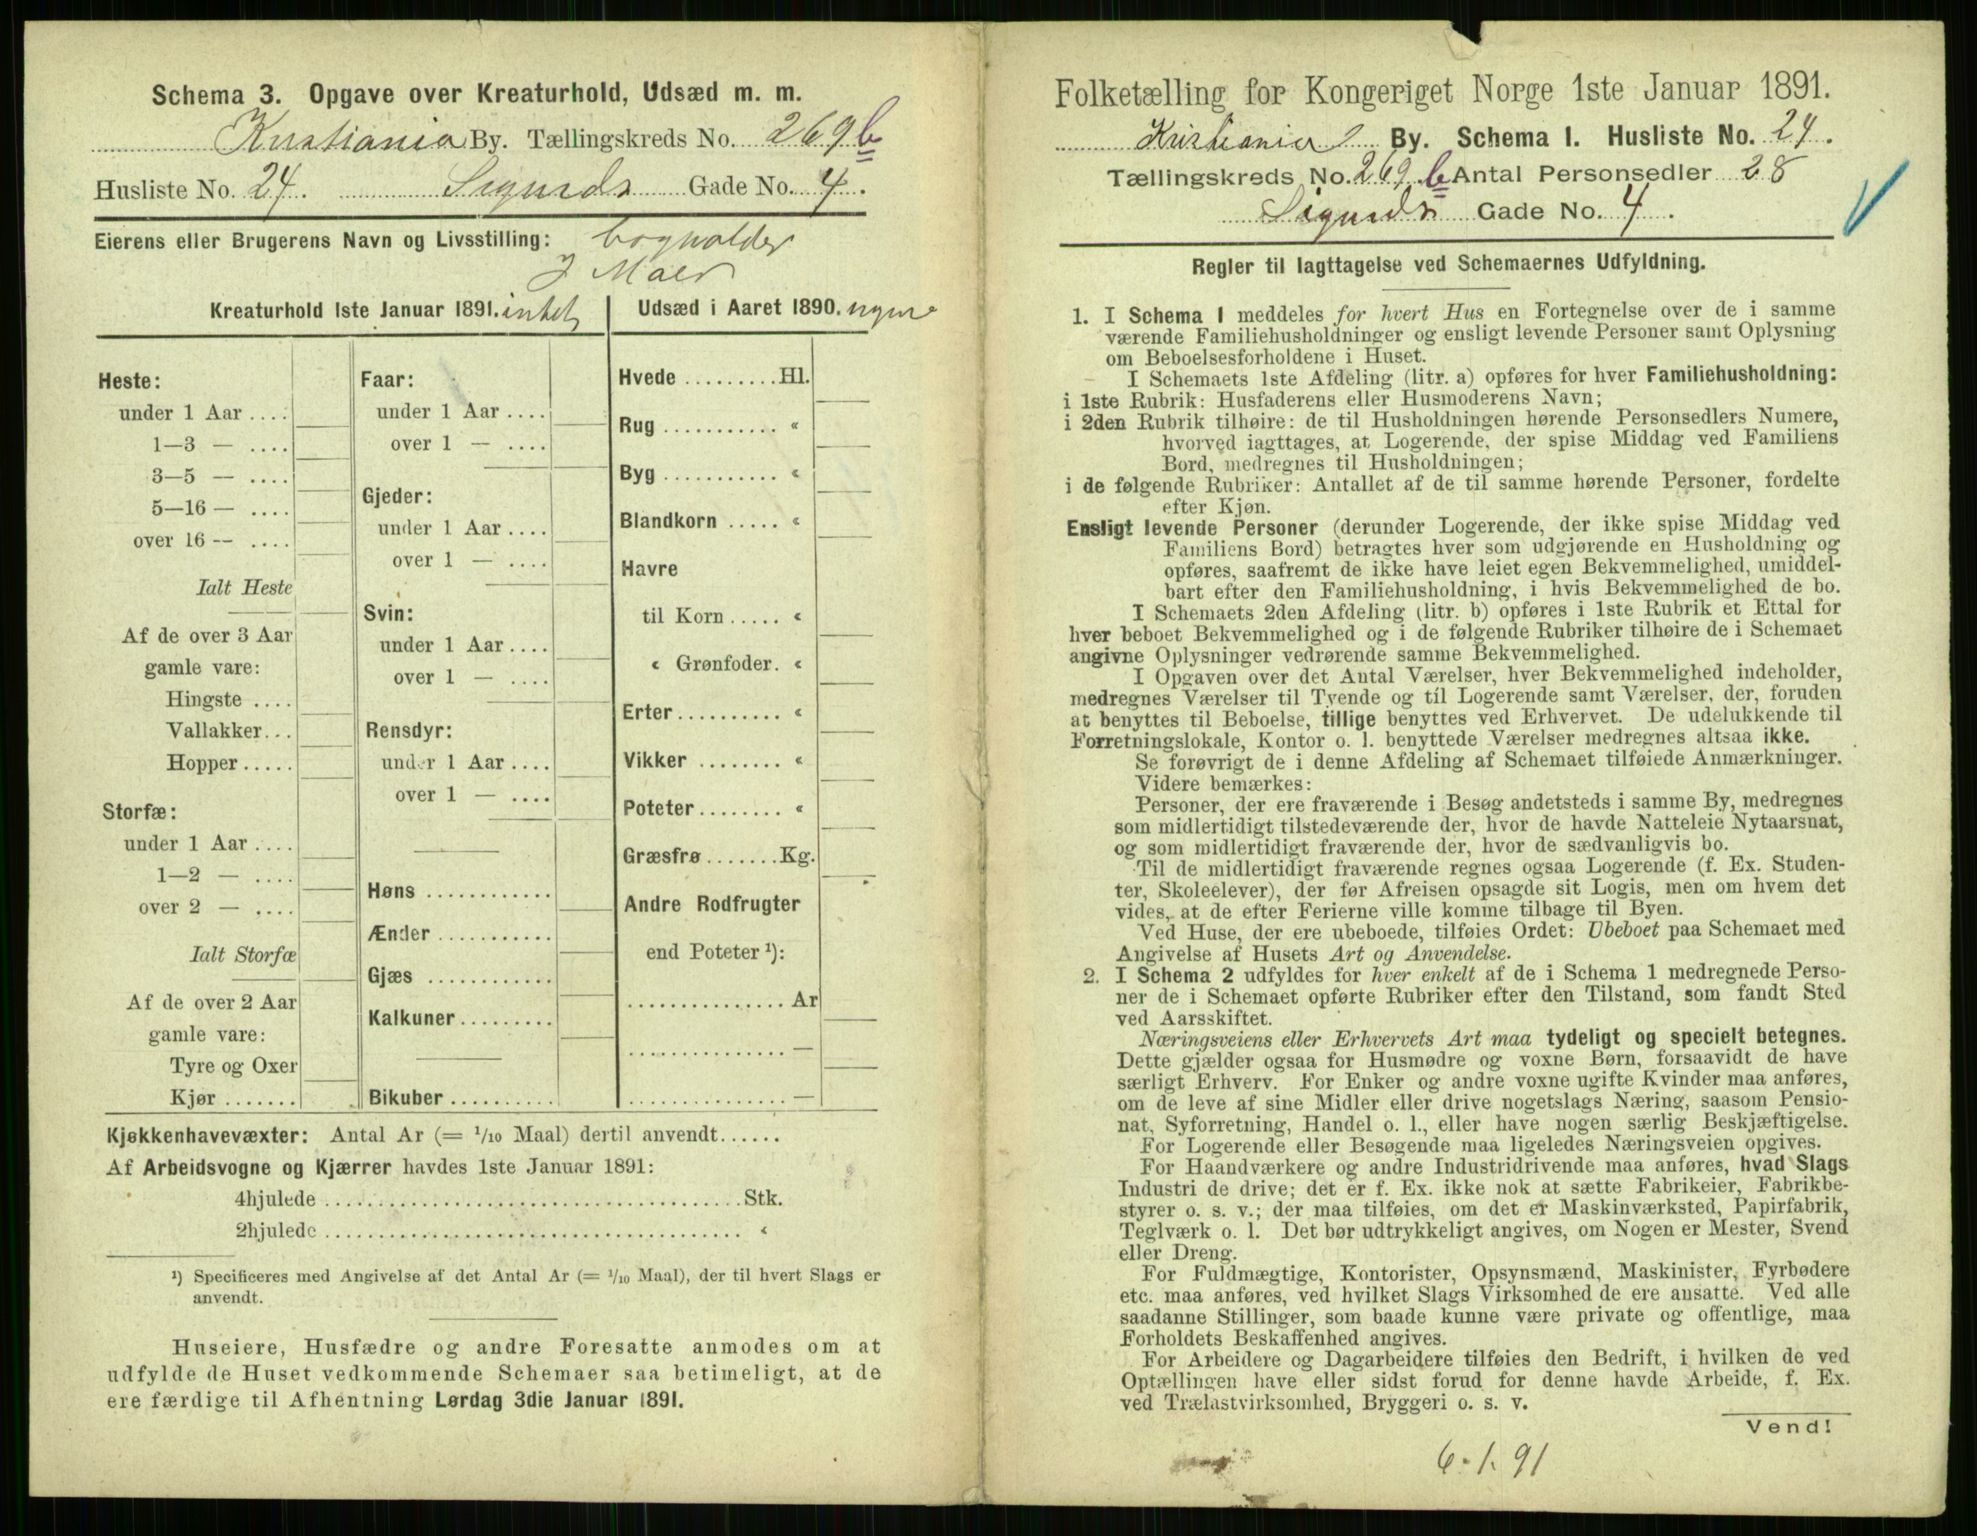 Schema 3. Opgave over Kreaturhold, Udsæd m. m.
Kristiania By. Tællingskreds No. 269 b
Husliste No. 24. Sigurds Gade No. 4.
Eierens eller Brugerens Navn og Livsstilling: bogholder
J Maer
Kreaturhold 1ste Januar 1891. intet
Heste:
under 1 Aar ....
1—3 — ....
3—5 — ....
5—16 — ....
over 16 — ....
Ialt Heste
Af de over 3 Aar
gamle vare:
Hingste ....
Vallakker...
Hopper.....
Storfæ:
under 1 Aar ....
1—2 — ....
over 2 — ....
Ialt Storfæ
Af de over 2 Aar
gamle vare:
Tyre og Oxer
Kjør .......
Faar:
under 1 Aar ....
over 1 — ....
Gjeder:
under 1 Aar ....
over 1 — ....
Svin:
under 1 Aar ....
over 1 — ....
Rensdyr:
under 1 Aar ....
over 1 — ....
Høns ............
Ænder ...........
Gjæs ............
Kalkuner.........
Bikuber ..........
Udsæd i Aaret 1890. ingen
Hvede .........Hl.
Rug ........... «
Byg ........... «
Blandkorn ..... «
Havre
til Korn ..... «
« Grønfoder. «
Erter.......... «
Vikker ........ «
Poteter........ «
Græsfrø .......Kg.
Andre Rodfrugter
end Poteter ¹):
............... Ar
............... —
............... —
Kjøkkenhavevæxter: Antal Ar (= 1/10 Maal) dertil anvendt......
Af Arbeidsvogne og Kjærrer havdes 1ste Januar 1891:
4hjulede ........................................Stk.
2hjulede ........................................ «
¹) Specificeres med Angivelse af det Antal Ar (= 1/10 Maal), der til hvert Slags er
anvendt.
Huseiere, Husfædre og andre Foresatte anmodes om at
udfylde de Huset vedkommende Schemaer saa betimeligt, at de
ere færdige til Afhentning Lørdag 3die Januar 1891.
Folketælling for Kongeriget Norge 1ste Januar 1891.
Kristiania By. Schema I. Husliste No. 24.
Tællingskreds No. 269 b Antal Personsedler 28
Sigurds Gade No. 4.
Regler til Iagttagelse ved Schemaernes Udfyldning.
1. I Schema I meddeles for hvert Hus en Fortegnelse over de i samme
værende Familiehusholdninger og ensligt levende Personer samt Oplysning
om Beboelsesforholdene i Huset.
I Schemaets 1ste Afdeling (litr. a) opføres for hver Familiehusholdning:
i 1ste Rubrik: Husfaderens eller Husmoderens Navn;
i 2den Rubrik tilhøire: de til Husholdningen hørende Personsedlers Numere,
hvorved iagttages, at Logerende, der spise Middag ved Familiens
Bord, medregnes til Husholdningen;
i de følgende Rubriker: Antallet af de til samme hørende Personer, fordelte
efter Kjøn.
Ensligt levende Personer (derunder Logerende, der ikke spise Middag ved
Familiens Bord) betragtes hver som udgjørende en Husholdning og
opføres, saafremt de ikke have leiet egen Bekvemmelighed, umiddel-
bart efter den Familiehusholdning, i hvis Bekvemmelighed de bo.
I Schemaets 2den Afdeling (litr. b) opføres i 1ste Rubrik et Ettal for
hver beboet Bekvemmelighed og i de følgende Rubriker tilhøire de i Schemaet
angivne Oplysninger vedrørende samme Bekvemmelighed.
I Opgaven over det Antal Værelser, hver Bekvemmelighed indeholder,
medregnes Værelser til Tyende og til Logerende samt Værelser, der, foruden
at benyttes til Beboelse, tillige benyttes ved Erhvervet. De udelukkende til
Forretningslokale, Kontor o. l. benyttede Værelser medregnes altsaa ikke.
Se forøvrigt de i denne Afdeling af Schemaet tilføiede Anmærkninger.
Videre bemærkes:
Personer, der ere fraværende i Besøg andetsteds i samme By, medregnes
som midlertidigt tilstedeværende der, hvor de havde Natteleie Nytaarsnat,
og som midlertidigt fraværende der, hvor de sædvanligvis bo.
Til de midlertidigt fraværende regnes ogsaa Logerende (f. Ex. Studen-
ter, Skoleelever), der før Afreisen opsagde sit Logis, men om hvem det
vides, at de efter Ferierne ville komme tilbage til Byen.
Ved Huse, der ere ubeboede, tilføies Ordet: Ubeboet paa Schemaet med
Angivelse af Husets Art og Anvendelse.
2. I Schema 2 udfyldes for hver enkelt af de i Schema 1 medregnede Perso-
ner de i Schemaet opførte Rubriker efter den Tilstand, som fandt Sted
ved Aarsskiftet.
Næringsveiens eller Erhvervets Art maa tydeligt og specielt betegnes.
Dette gjælder ogsaa for Husmødre og voxne Børn, forsaavidt de have
særligt Erhverv. For Enker og andre voxne ugifte Kvinder maa anføres,
om de leve af sine Midler eller drive nogetslags Næring, saasom Pensio-
nat, Syforretning, Handel o. l., eller have nogen særlig Beskjæftigelse.
For Logerende eller Besøgende maa ligeledes Næringsveien opgives.
For Haandværkere og andre Industridrivende maa anføres, hvad Slags
Industri de drive; det er f. Ex. ikke nok at sætte Fabrikeier, Fabrikbe-
styrer o. s. v.; der maa tilføies, om det er Maskinværksted, Papirfabrik,
Teglværk o. l. Det bør udtrykkeligt angives, om Nogen er Mester, Svend
eller Dreng.
For Fuldmægtige, Kontorister, Opsynsmænd, Maskinister, Fyrbødere
etc. maa anføres, ved hvilket Slags Virksomhed de ere ansatte. Ved alle
saadanne Stillinger, som baade kunne være private og offentlige, maa
Forholdets Beskaffenhed angives.
For Arbeidere og Dagarbeidere tilføies den Bedrift, i hvilken de ved
Optællingen have eller sidst forud for denne havde Arbeide, f. Ex.
ved Trælastvirksomhed, Bryggeri o. s. v.
Vend!
6.1.91